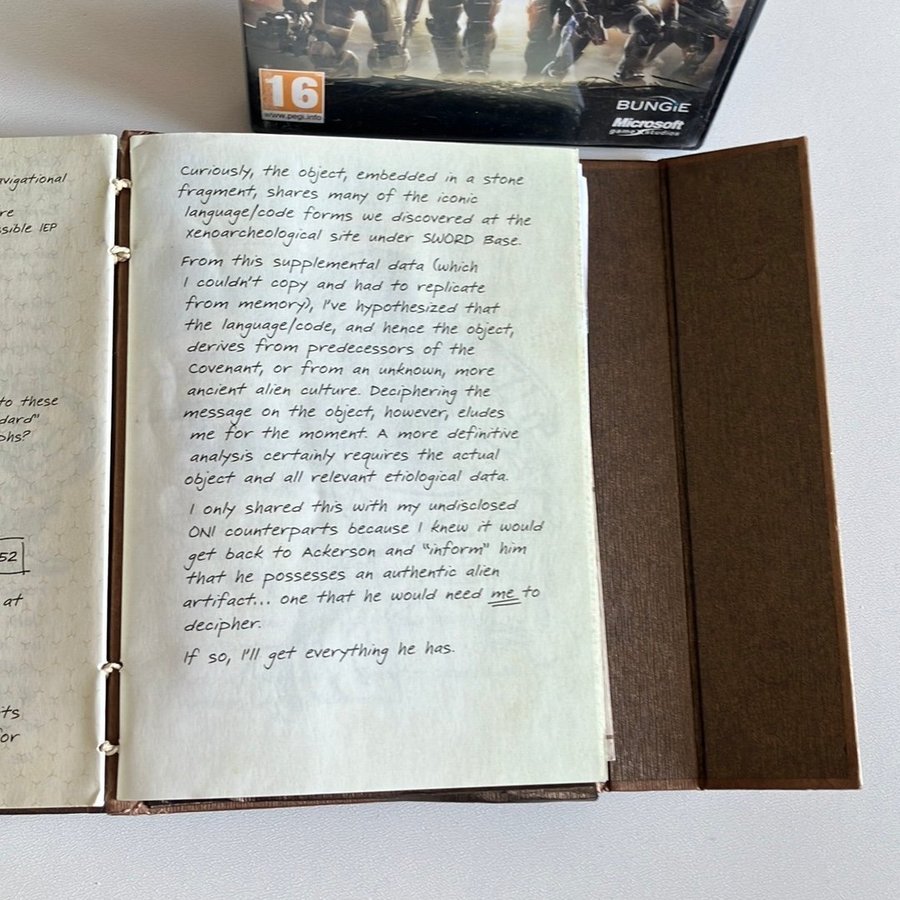 16
www.pegi.info
BUNGiE
Microsoft
game studios
avigational
re
ssible IEP
to these
dard"
phs?
52
at
its
for
Curiously, the object, embedded in a stone
fragment, shares many of the iconic
language/code forms we discovered at the
xenoarcheological site under SWORD Base.
From this supplemental data (which
I couldn't copy and had to replicate
from memory), I've hypothesized that
the language/code, and hence the object,
derives from predecessors of the
Covenant, or from an unknown, more
ancient alien culture. Deciphering the
message on the object, however, eludes
me for the moment. A more definitive
analysis certainly requires the actual
object and all relevant etiological data.
I only shared this with my undisclosed
ONI counterparts because I knew it would
get back to Ackerson and "inform" him
that he possesses an authentic alien
artifact... one that he would need me to
decipher.
If so, I'll get everything he has.